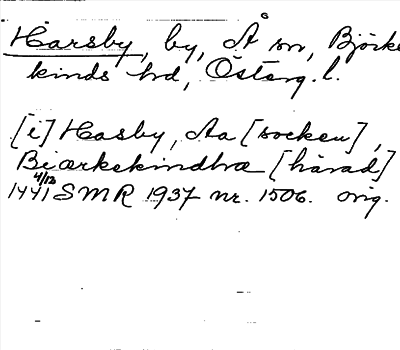 Harsby, by, Å sn, Björke-
kinds hd, Östерg. l.
[i] Hasby, Aa [socken],
Biærkekindhræ [härad]
4/12
1441 SMR 1937 nr. 1506. orig.